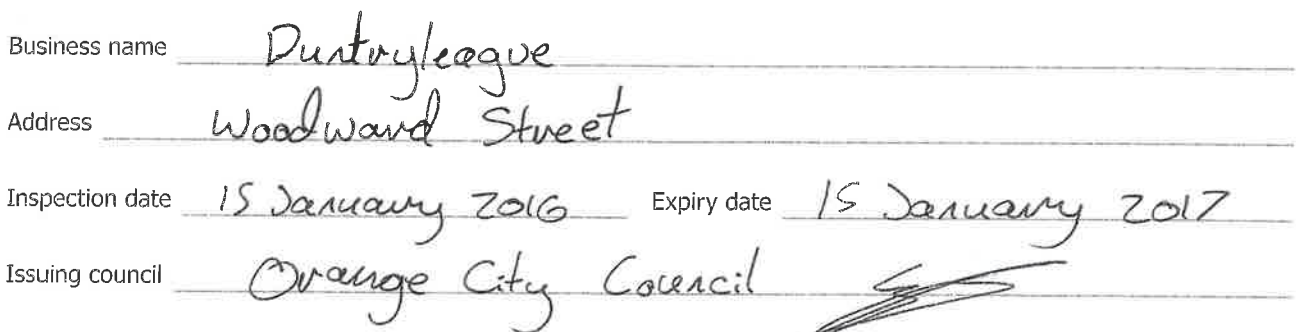 Business name Duntryleague
Address Woodward Street
Inspection date 15 January 2016 Expiry date 15 January 2017
Issuing council Orange City Council